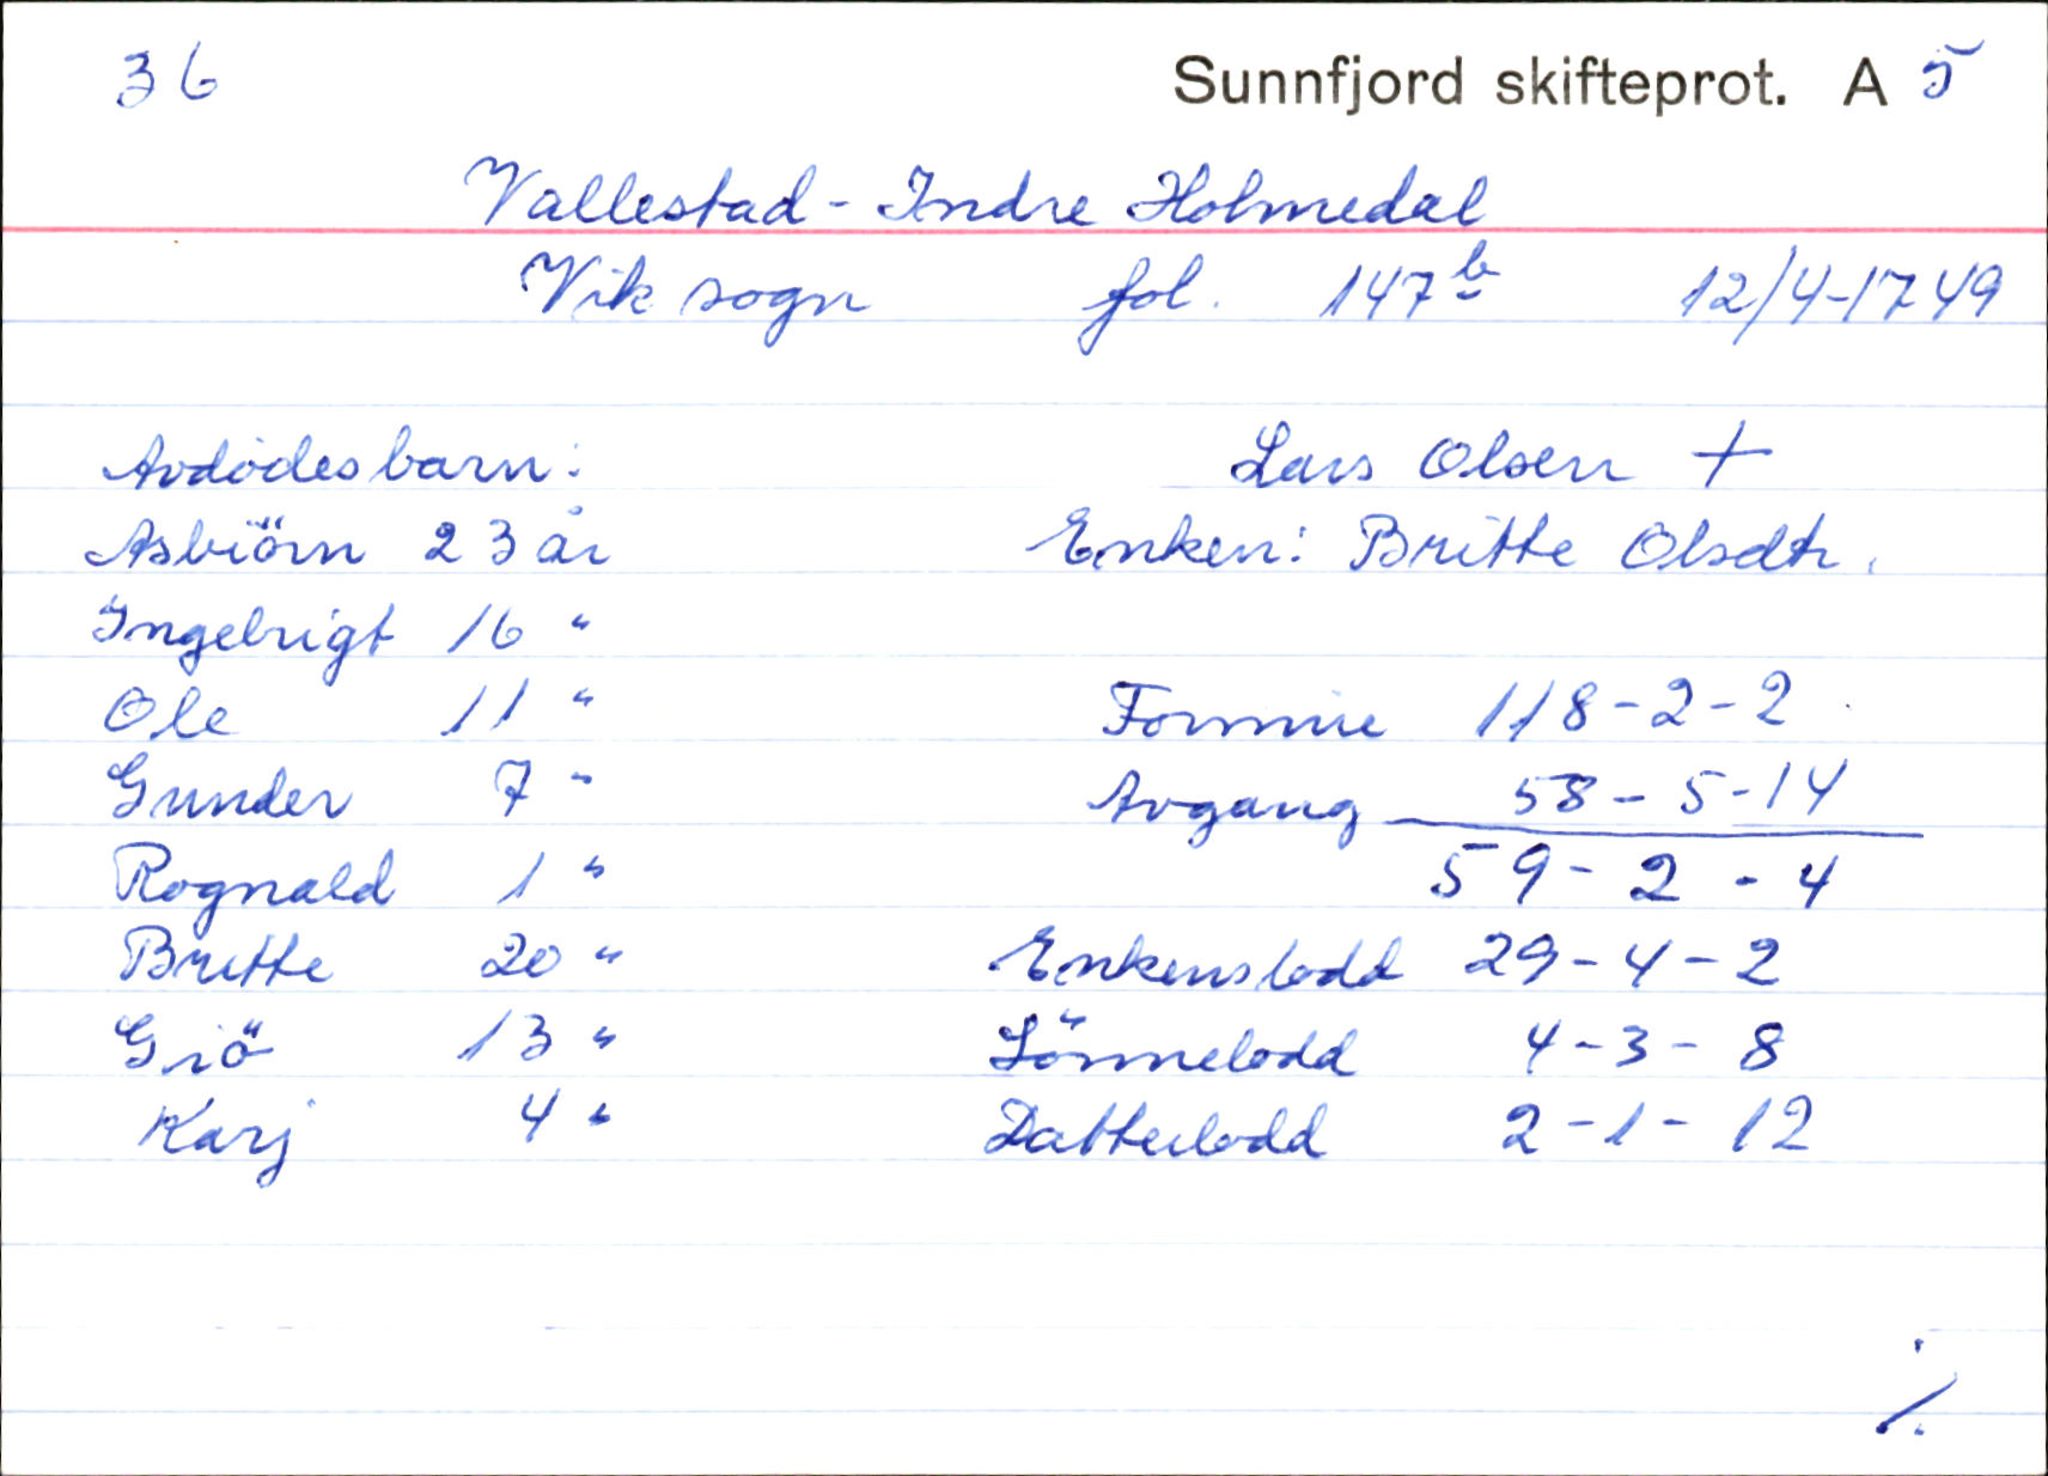 36 Sunnfjord skifteprot. A 5
Vallestad - Indre Holmedal
Vik sogn fol. 147 b 12/4-1749
Avdödes barn: Lars Olsen +
Asbiörn 23 år Enken: Britte Olsdtr.
Ingebrigt 16 "
Ole 11 " Formue 118-2-2
Gunder 7 " Avgang 58-5-14
Rognald 1 " 59-2-4
Britte 20 " Enkens lodd 29-4-2
Giö 13 " Sönnelodd 4-3-8
Karj 4 " Datterlodd 2-1-12
./.